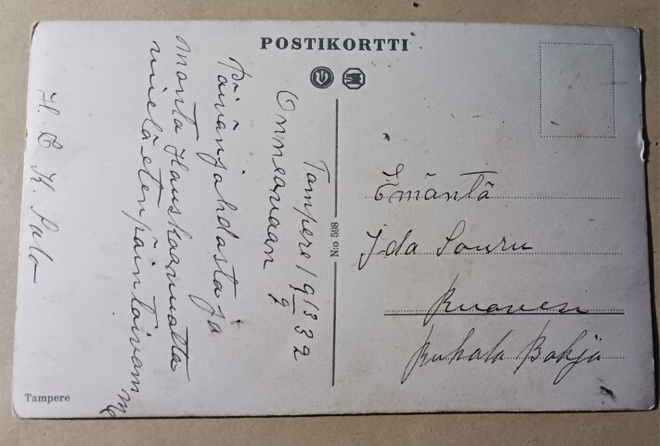 POSTIKORTTI
Tampere 19 13/9 32
Onneavaan
Päivänsahdasta ja
monta Hauskaavuotta
vielä etenpäin toivomme
H. K. Salo
Emäntä
Ida Souru
Ruovesi
Ruhala Pohja
N:o 598
Tampere